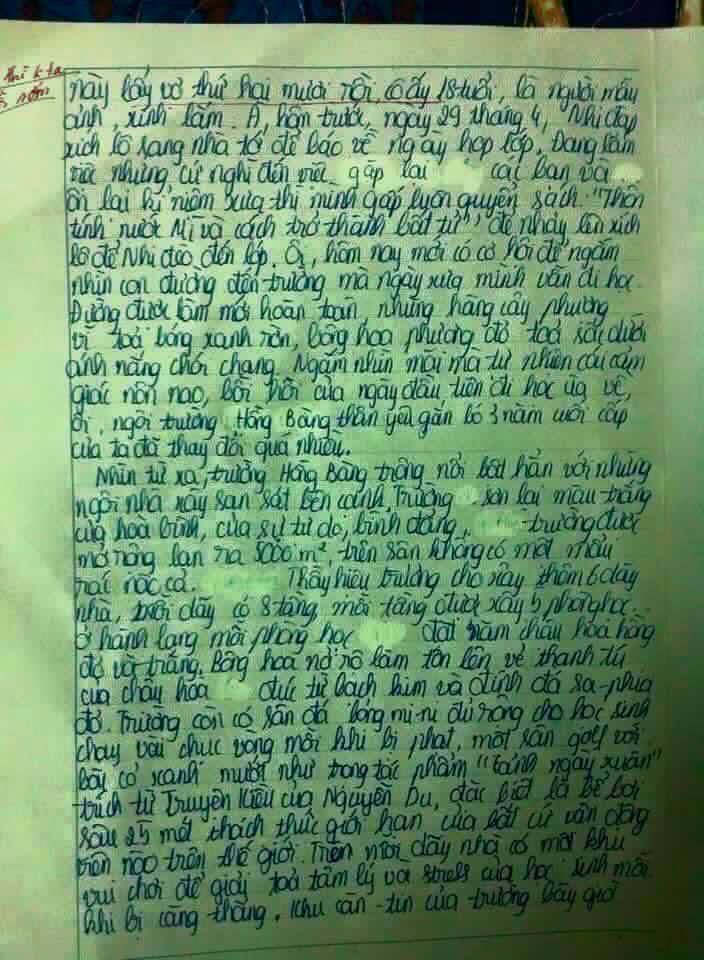 này lấy vợ thứ hai mươi rồi, cô ấy 18 tuổi, là người mẫu
ảnh, xinh lắm. À, hôm trước, ngày 29 tháng 4, Nhi đạp
xích lô sang nhà tớ để báo về ngày họp lớp. Đang
việc nhưng cứ nghĩ đến việc gặp lại các bạn và
ôn lại kỉ niệm xưa thì mình gấp luôn quyển sách "Thôn
tính nước Mĩ và cách trở thành bất tử" để nhảy lên xích
lô để Nhi đèo đến lớp. Ôi, hôm nay mới có cơ hội để ngắm
nhìn con đường đến trường mà ngày xưa mình vẫn đi học.
Đường được làm mới hoàn toàn, những hàng cây phượng
vĩ toả bóng xanh rờn, bông hoa phượng đỏ toả sắc dưới
ánh nắng chói chang. Ngắm nhìn mãi mà tự nhiên cái cảm
giác nôn nao, bồi hồi của ngày đầu tiên đi học ùa về,
ôi, ngôi trường Hồng Bàng thân yêu gắn bó 3 năm cuối cấp
của ta đã thay đổi quá nhiều.
Nhìn từ xa, trường Hồng Bàng trông nổi bật hẳn với những
ngôi nhà xây san sát bên cạnh. Trường sơn lại màu trắng
của hoà bình, của sự tự do, bình đẳng, trường được
mở rộng lan ra 5000 m², trên sân không có một mẩu
rác nào cả. Thầy hiệu trưởng cho xây thêm 6 dãy
nhà, mỗi dãy có 8 tầng, mỗi tầng được xây 5 phòng học.
Ở hành lang mỗi phòng học đặt năm chậu hoa hồng
đỏ và trắng. Bông hoa nở rộ làm tôn lên vẻ thanh tú
của chậu hoa đúc từ bạch kim và đính đá sa-phia
đỏ. Trường còn có sân đá bóng mi-ni đủ rộng cho học sinh
chạy vài chục vòng mỗi khi bị phạt, một sân golf với
bãi cỏ xanh mướt như trong tác phẩm "Cảnh ngày xuân"
trích từ Truyện Kiều của Nguyễn Du, đặc biệt là bể bơi
sâu 25 mét thách thức giới hạn của bất cứ vận động
viên nào trên thế giới. Trên mỗi dãy nhà có một khu
vui chơi để giải toả tâm lý và stress của học sinh mỗi
khi bị căng thẳng. Khu căn-tin của trường bây giờ